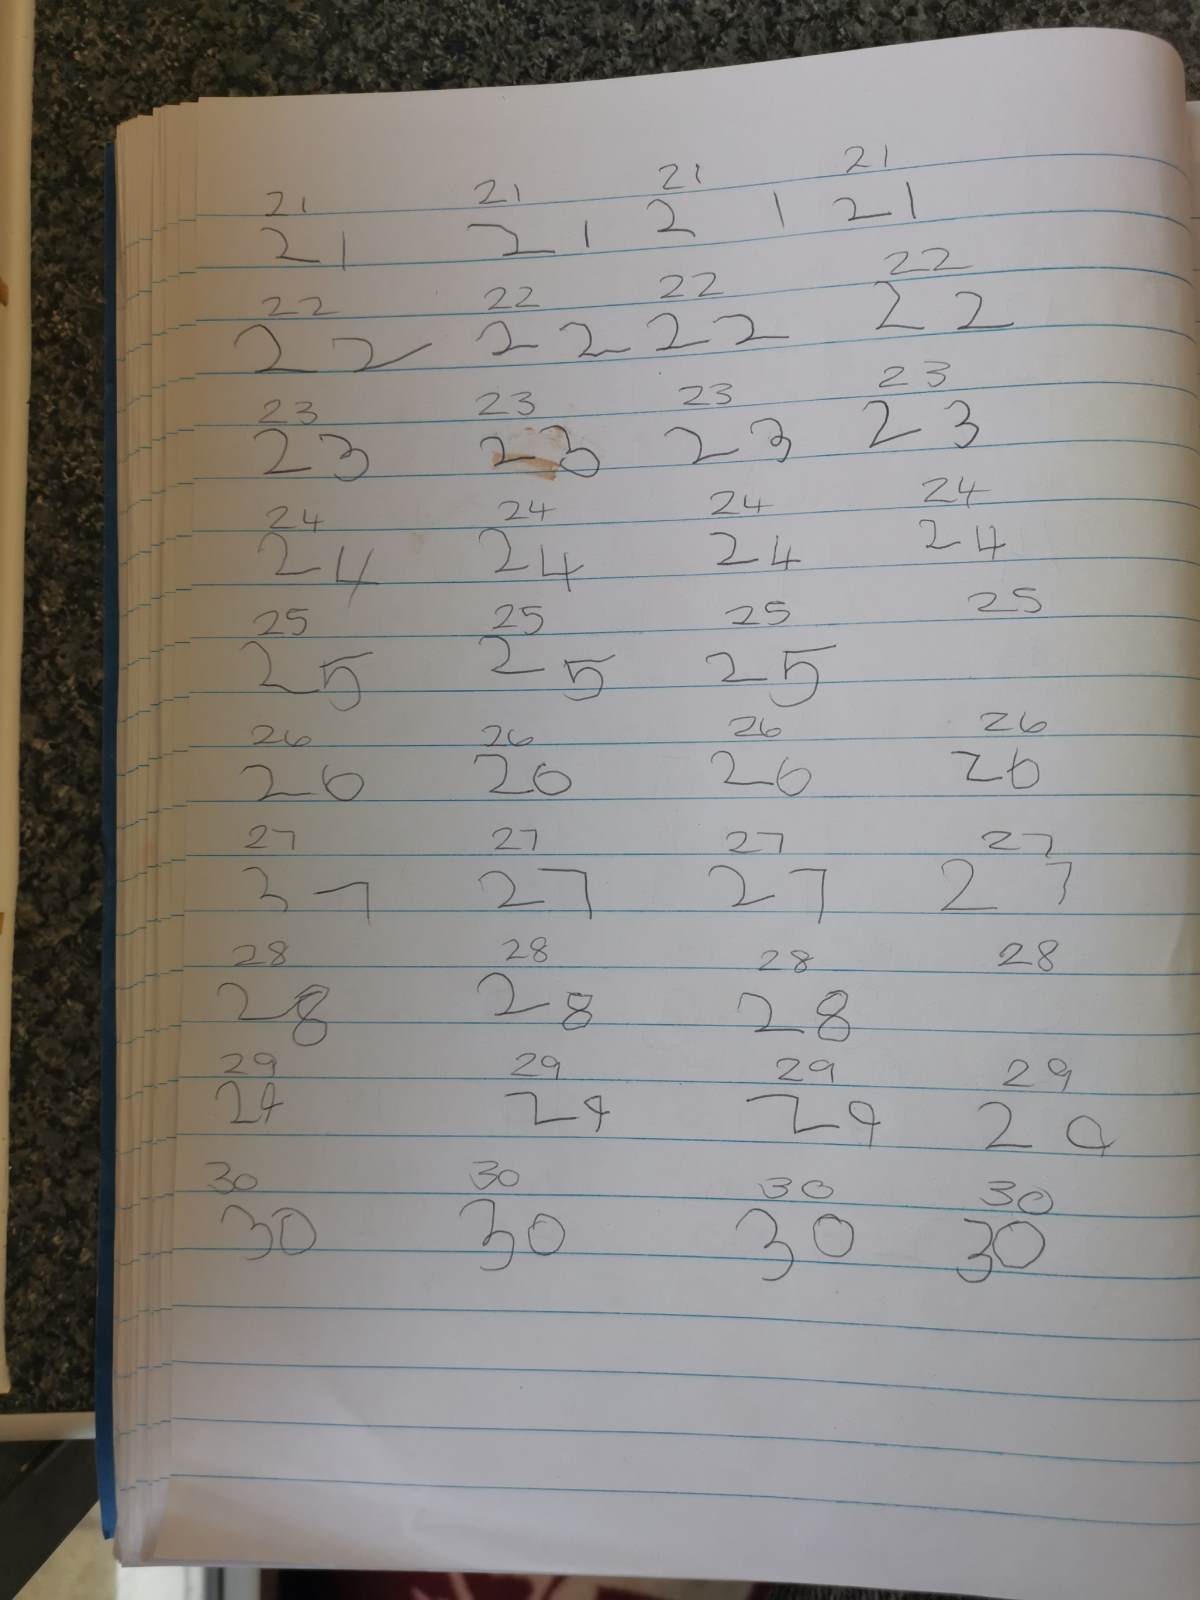 21 21 21 21
21 21 21 21
22 22 22 22
22 22 22 22
23 23 23 23
23 23 23 23
24 24 24 24
24 24 24 24
25 25 25 25
25 25 25
26 26 26 26
26 26 26 26
27 27 27 27
37 27 27 27
28 28 28 28
28 28 28
29 29 29 29
29 29 29 29
30 30 30 30
30 30 30 30